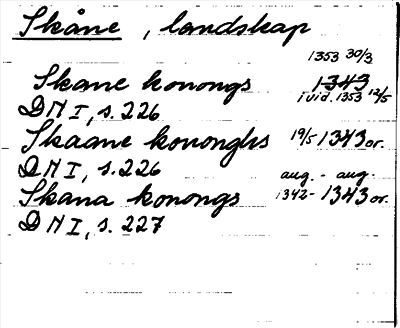 Skåne, landskap
1353 30/3
Skane konongs 1343
i vid. 1353 12/5
DN I, s. 226
Skaane kononghs 19/5 1343 or.
DN I, s. 226 aug. - aug.
Skana konongs 1342-1343 or.
DN I, s. 227